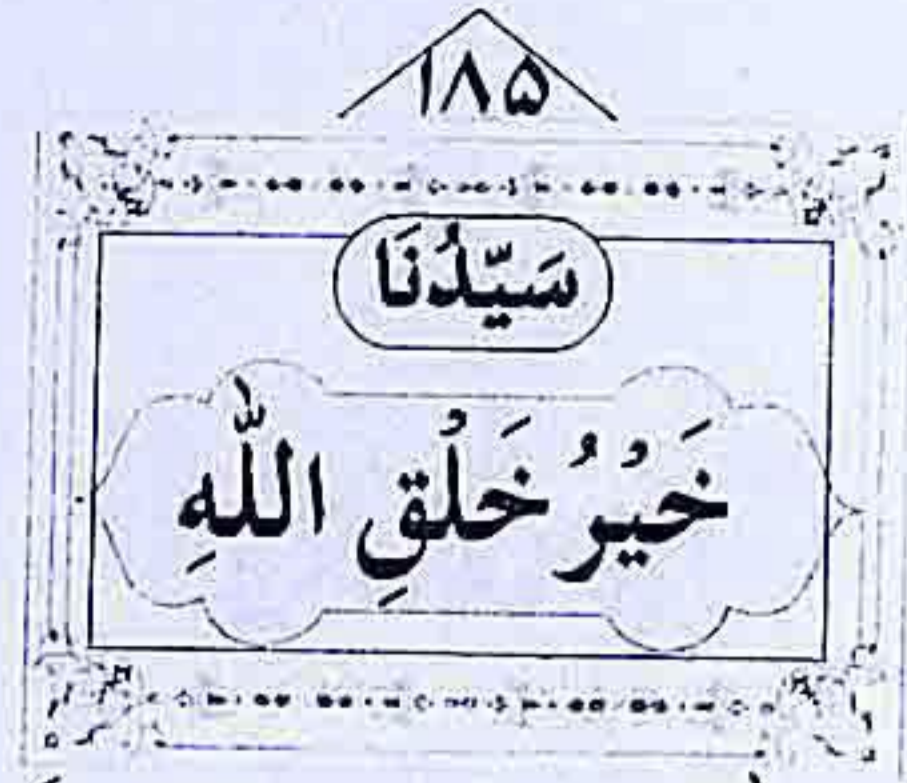 ۱۸۵
سَيِّدُنَا
خَيْرُ خَلْقِ اللّٰهِ